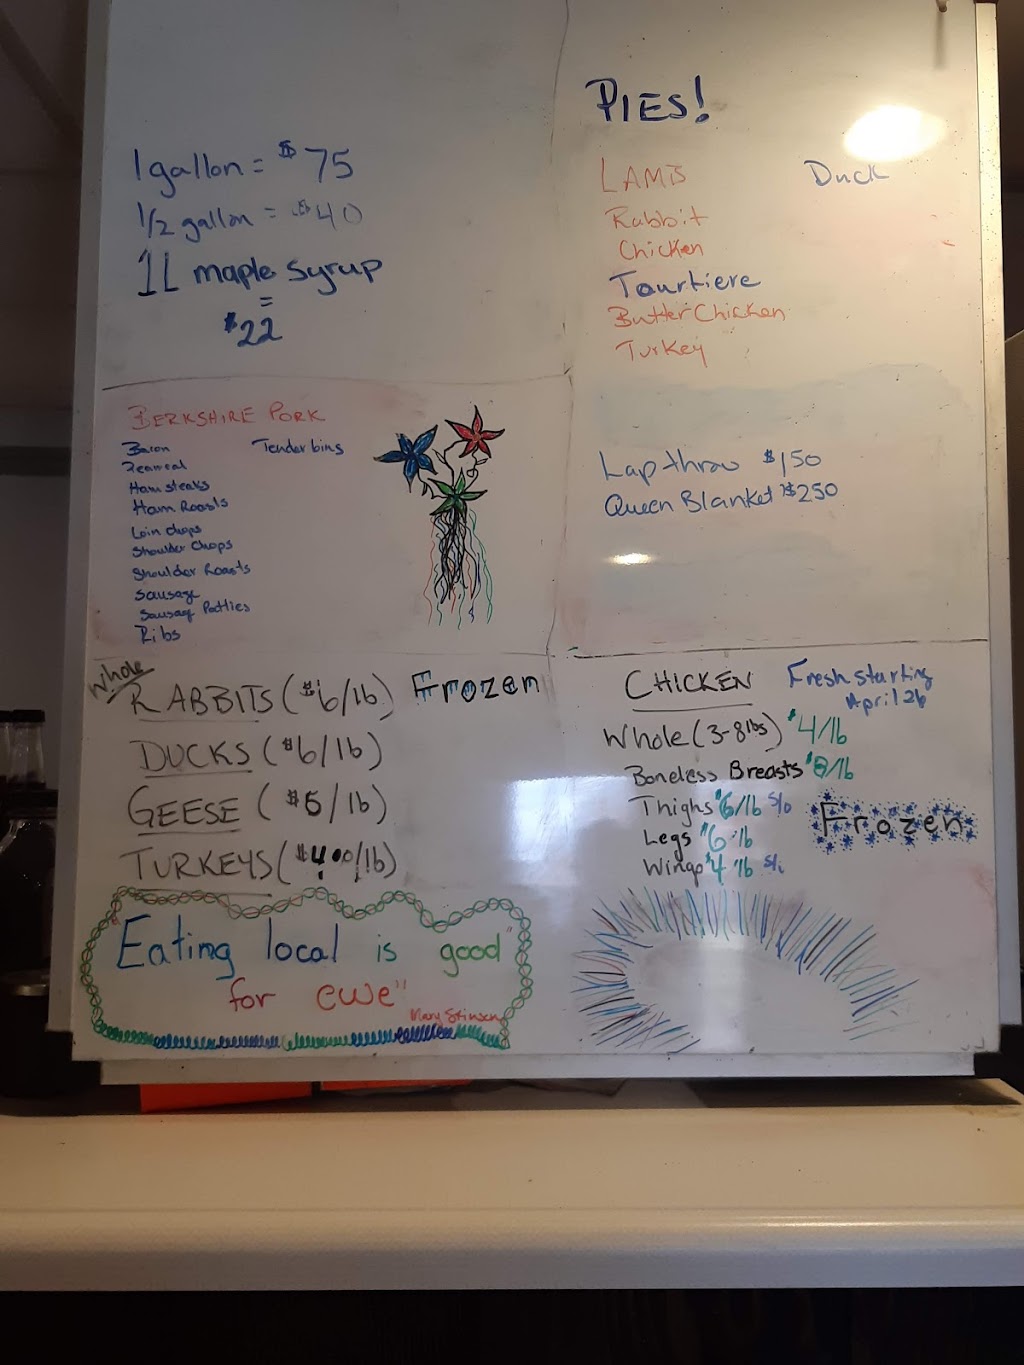 1 gallon = $75
1/2 gallon = $40
1L maple syrup
=
$22
PIES!
LAMB Duck
Rabbit
Chicken
Tourtiere
Butter Chicken
Turkey
BERKSHIRE PORK
Bacon Tenderloins
Peameal
Ham steaks
Ham Roasts
Loin chops
Shoulder Chops
Shoulder Roasts
Sausage
Sausage Patties
Ribs
Lap throw $150
Queen Blanket $250
Whole
RABBITS ($6/lb) Frozen
DUCKS ($6/lb)
GEESE ($5/lb)
TURKEYS ($4.00/lb)
"Eating local is good"
for ewe"
Mary Stinson
CHICKEN Fresh starting
April 26
Whole (3-8 lbs) $4/lb
Boneless Breasts $8/lb
Thighs $6/lb S/o
Legs $6 lb
Frozen
Wings $4 lb